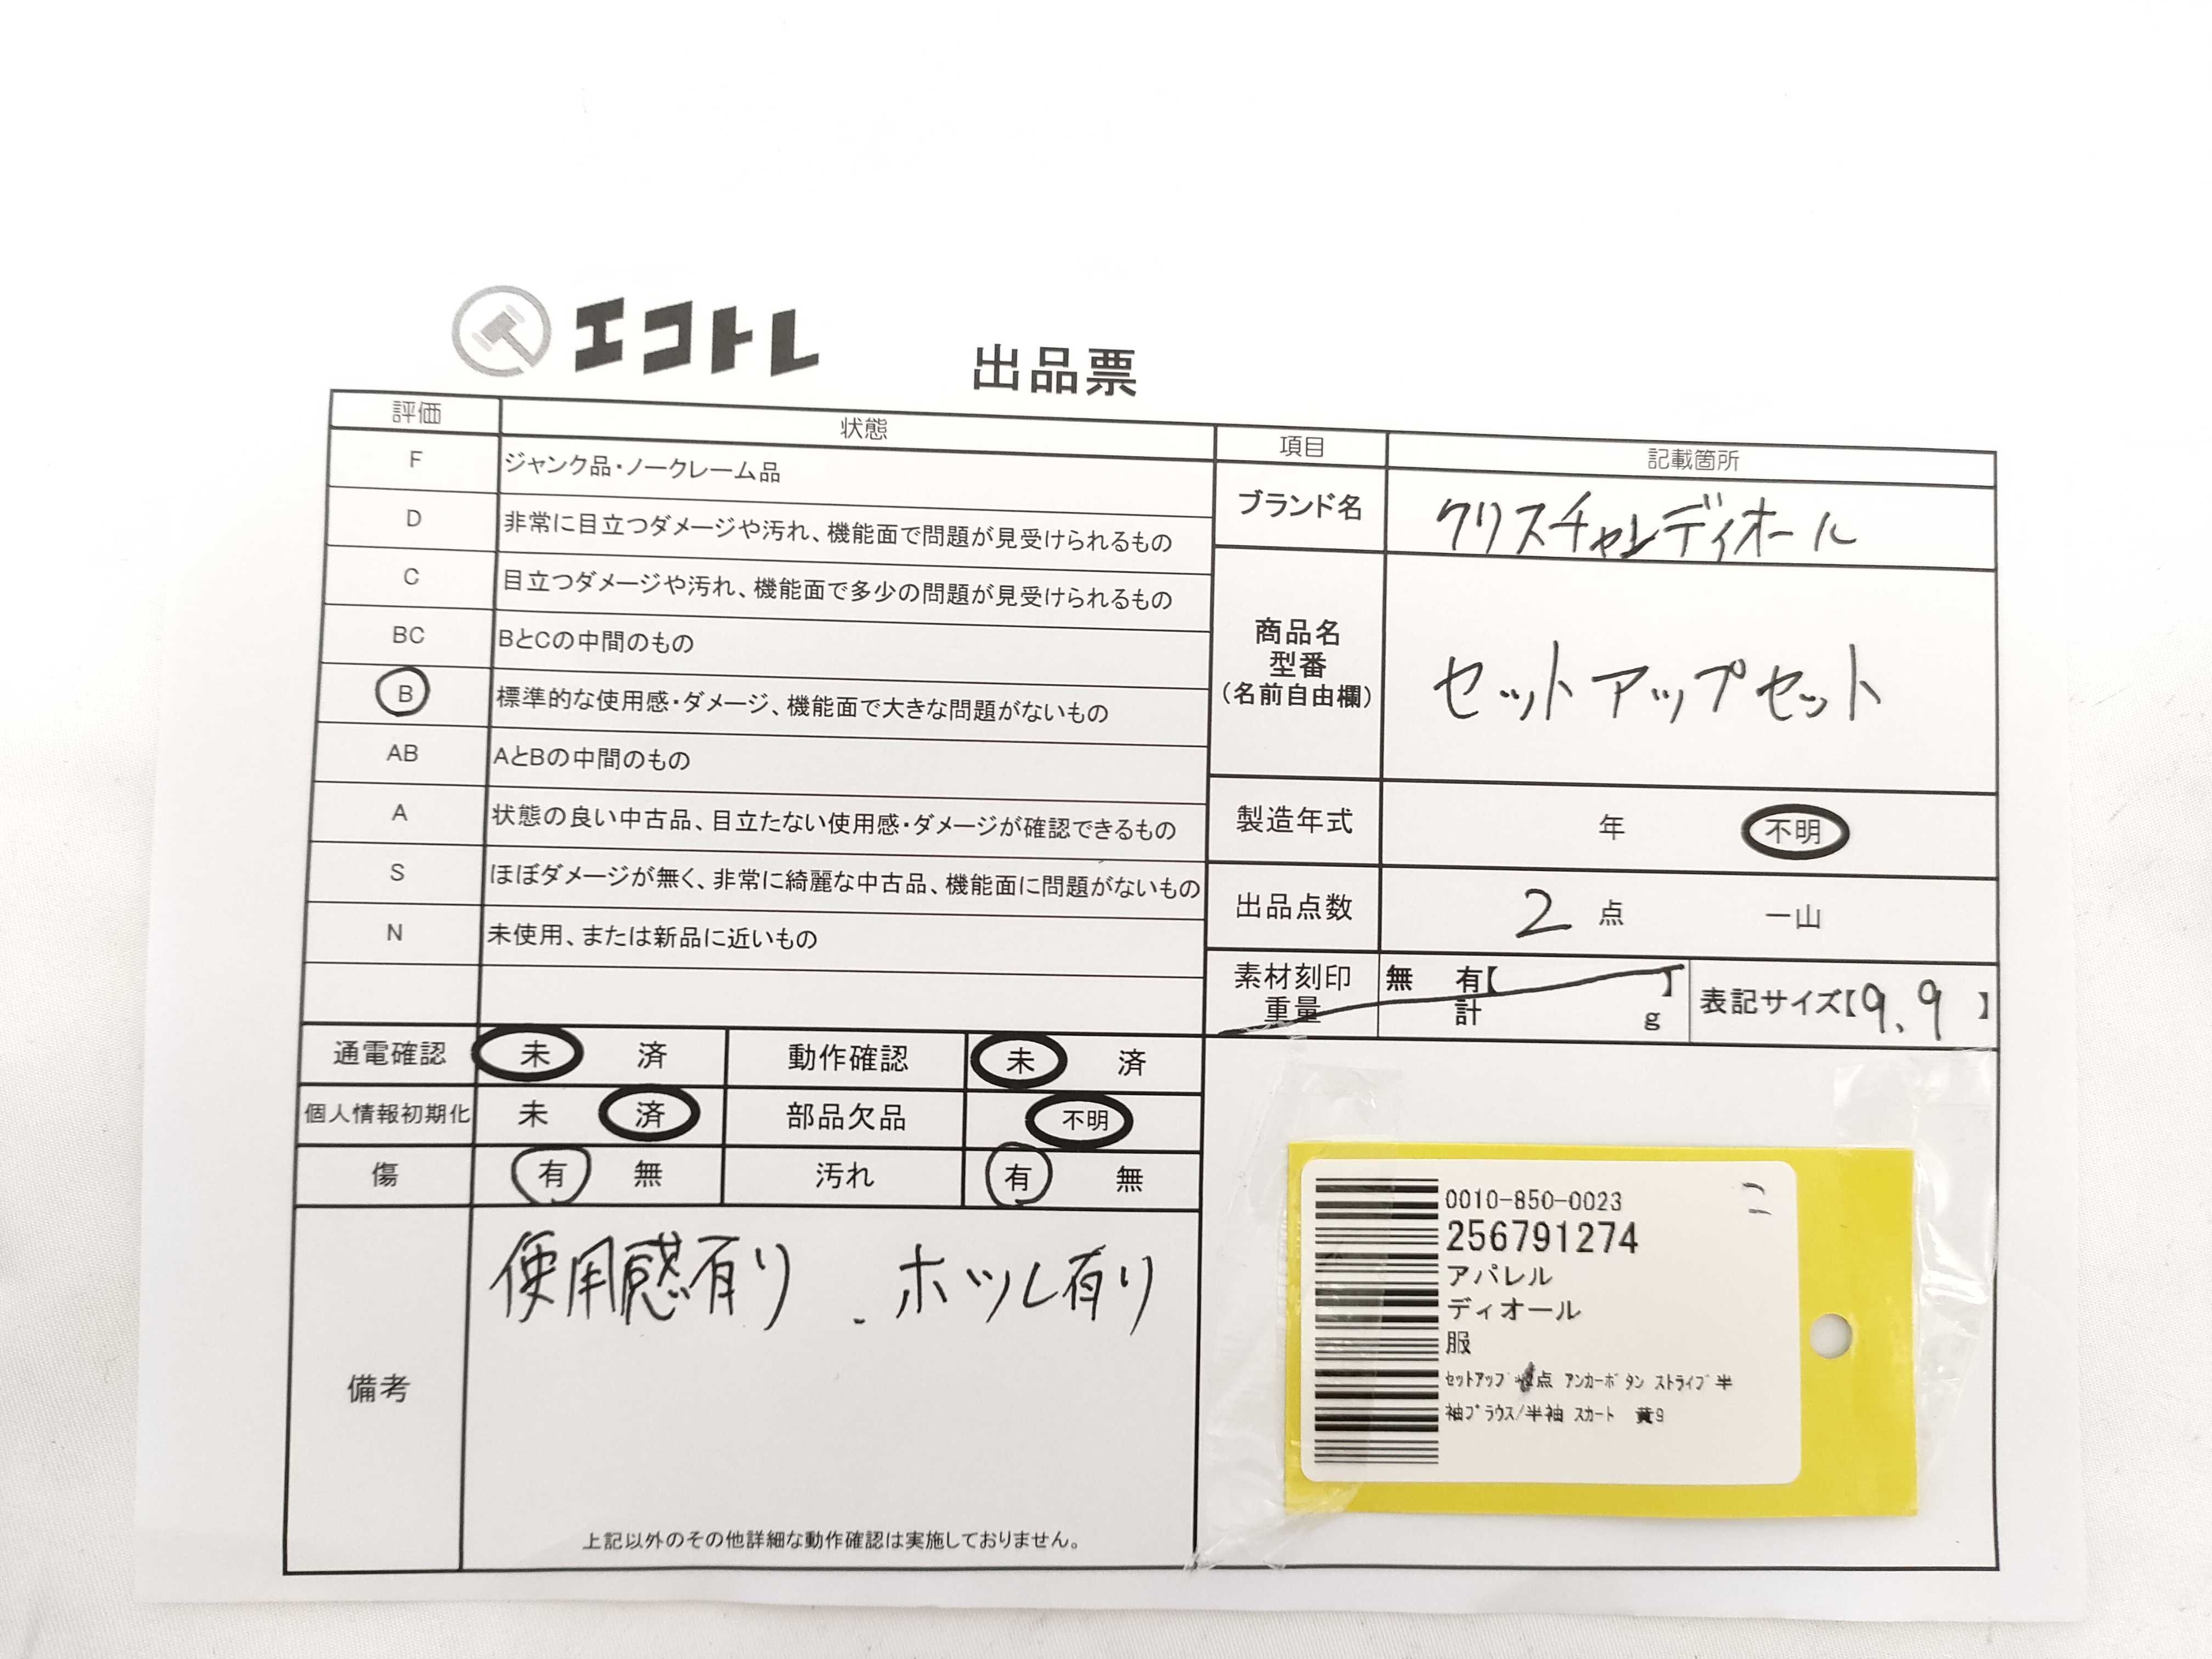 エコトレ
出品票
評価 状態
F ジャンク品・ノークレーム品
D 非常に目立つダメージや汚れ、機能面で問題が見受けられるもの
C 目立つダメージや汚れ、機能面で多少の問題が見受けられるもの
BC BとCの中間のもの
B 標準的な使用感・ダメージ、機能面で大きな問題がないもの
AB AとBの中間のもの
A 状態の良い中古品、目立たない使用感・ダメージが確認できるもの
S ほぼダメージが無く、非常に綺麗な中古品、機能面に問題がないもの
N 未使用、または新品に近いもの
項目 記載箇所
ブランド名 クリスチャンディオール
商品名
型番
(名前自由欄)
セットアップセット
製造年式 年 不明
出品点数 2 点 一山
素材刻印 無 有【 】
重量 計 g
表記サイズ【9、9】
通電確認 未 済 動作確認 未 済
個人情報初期化 未 済 部品欠品 不明
傷 有 無 汚れ 有 無
備考
使用感有り、ホツレ有り
上記以外のその他詳細な動作確認は実施しておりません。
0010-850-0023
256791274
アパレル
ディオール
服
ｾｯﾄｱｯﾌﾟ 点 ｱﾝｶｰﾎﾞﾀﾝ ｽﾄﾗｲﾌﾟ半
袖ﾌﾞﾗｳｽ/半袖 ｽｶｰﾄ 黄9